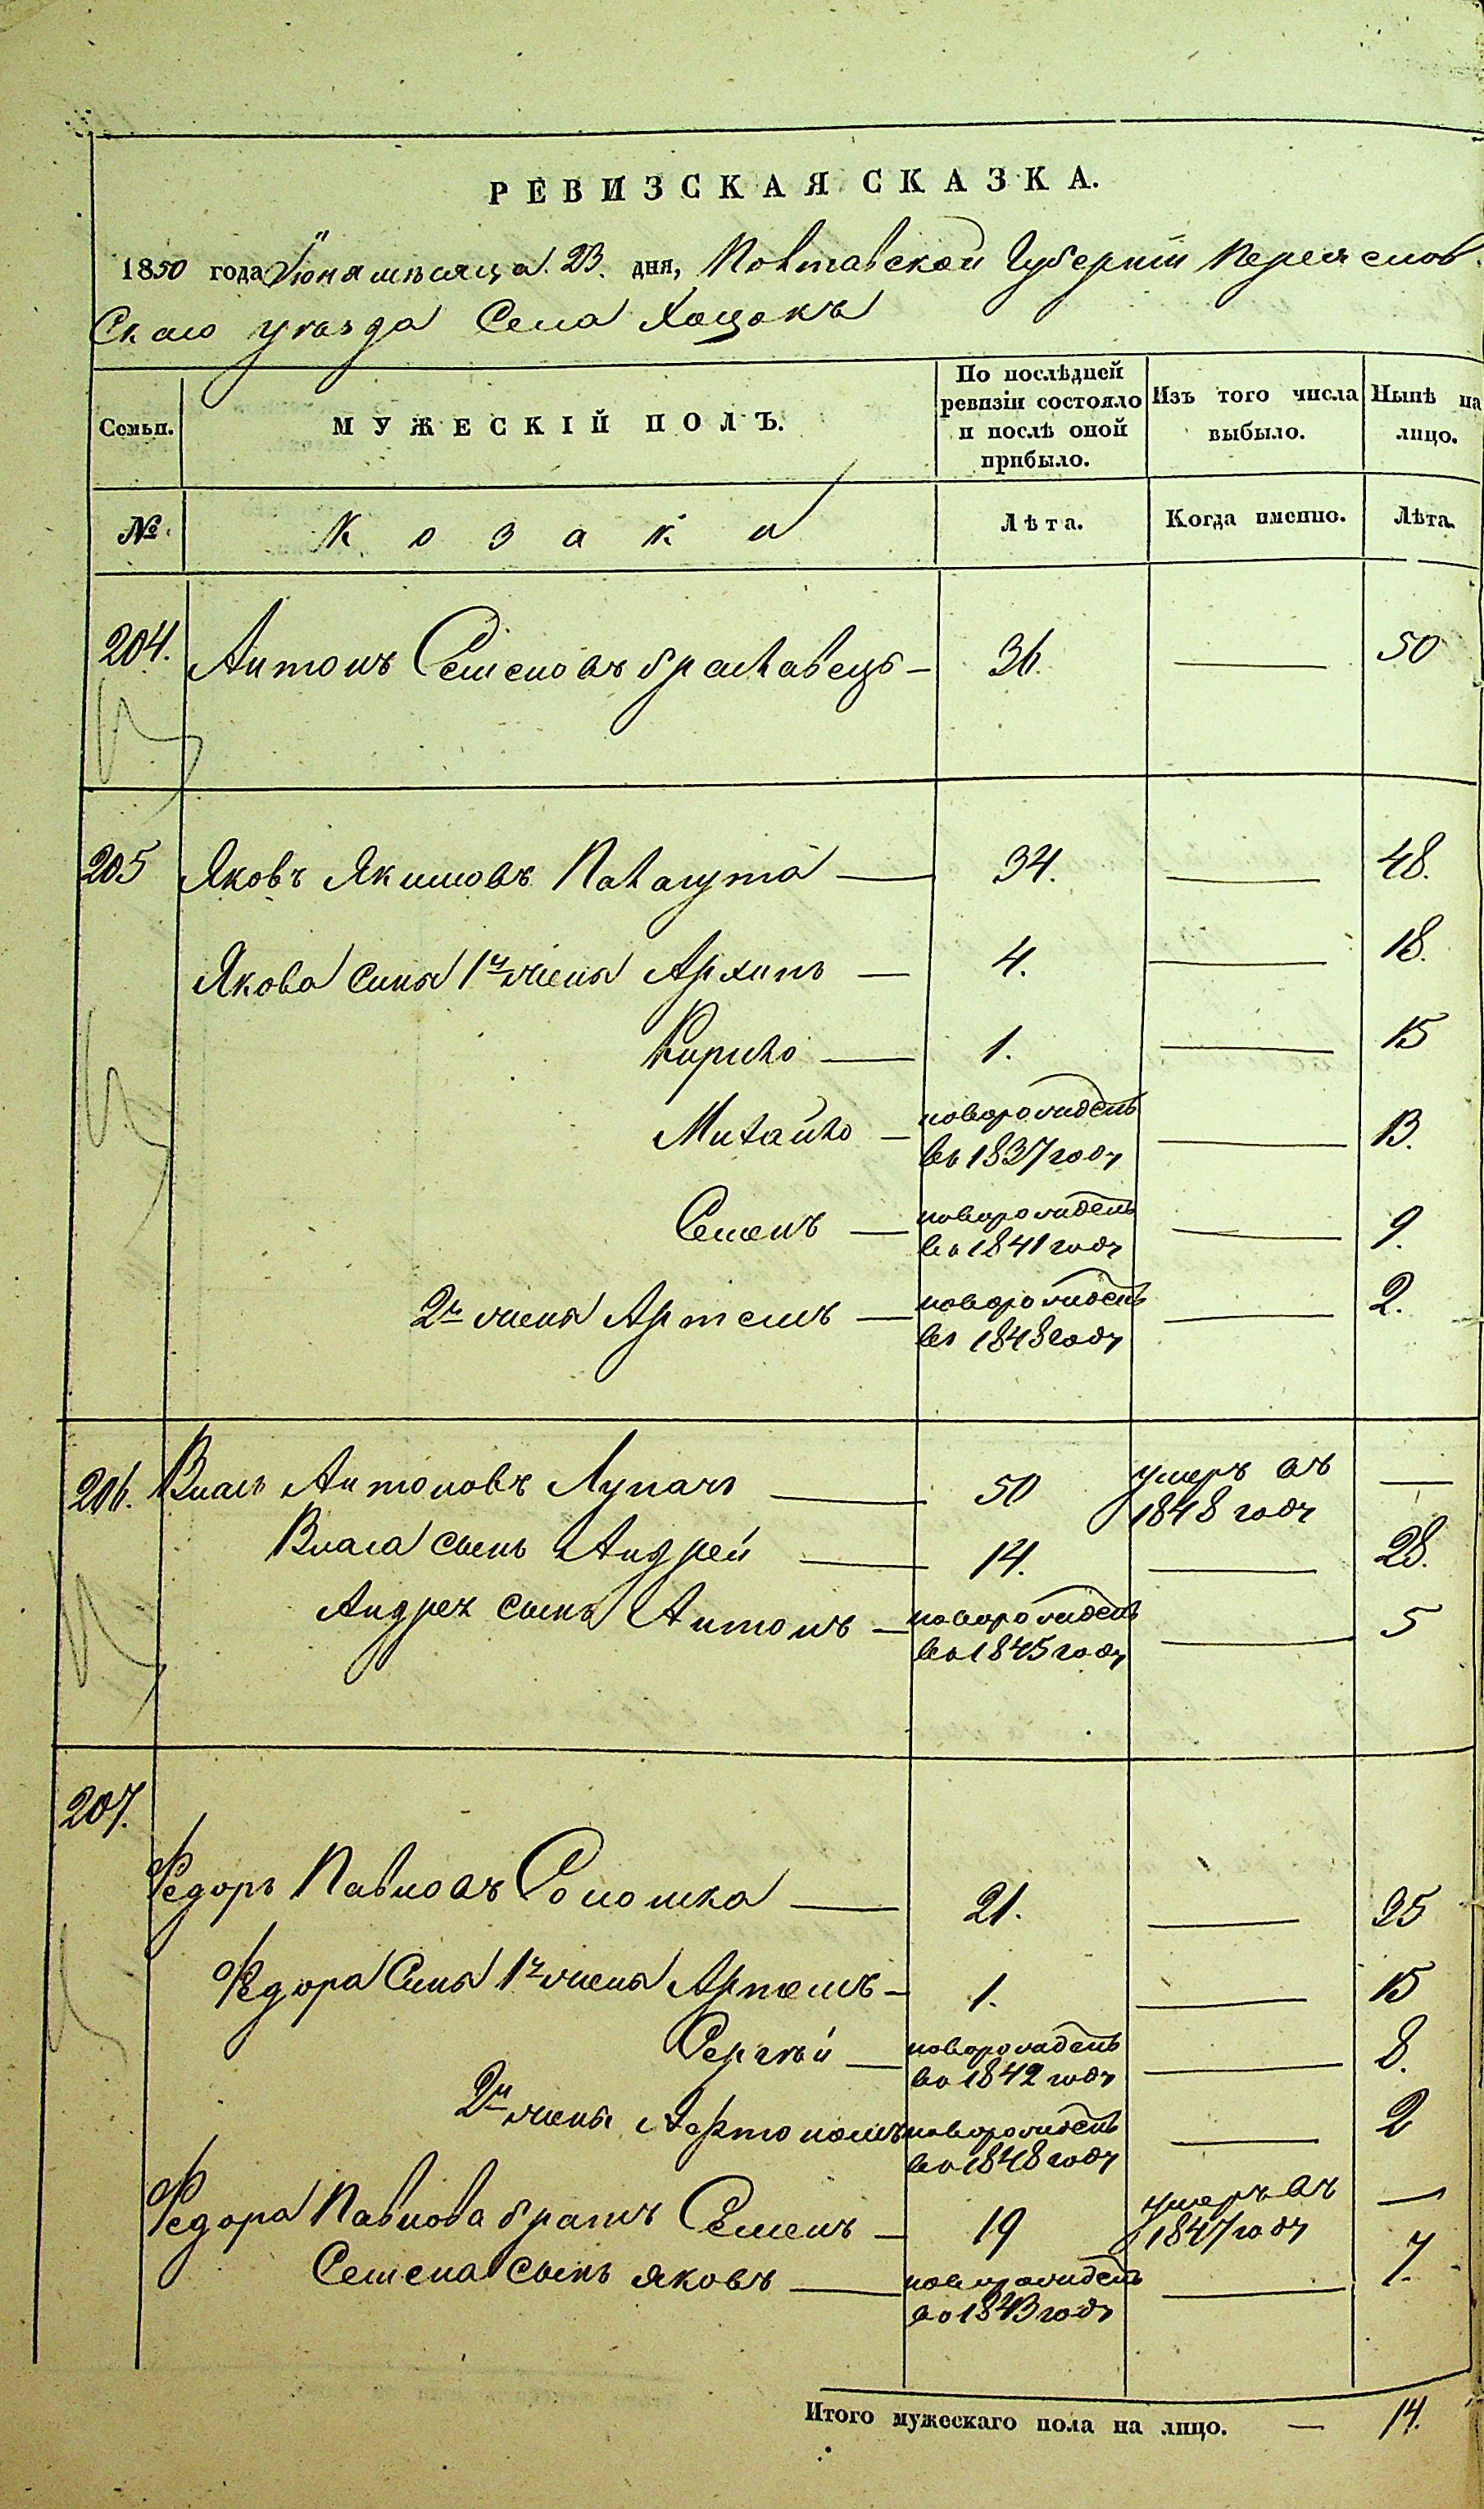 РЕВИЗСКАЯ СКАЗКА.
1850 года Июня мѣсяца 23. дня, Полтавской Губерніи Переяслов
скаго уѣзда Села Хоцокъ
Семьи.
МУЖЕСКІЙ ПОЛЪ.
По послѣдней ревизіи состояло и послѣ оной прибыло.
Изъ того числа выбыло.
Нынѣ на лицо.
№ Козаки Лѣта. Когда именно. Лѣта.
204. Антонъ Семеновъ браславецъ — 36. — 50
205 Яковъ Якимовъ Палагута — 34. — 48.
Якова сины 1й жены Архипъ — 4. — 18.
Кирило — 1. — 15
Михайло — новорожденъ во 1837 году — 13.
Семенъ — новорожденъ во 1841 году — 9.
2й жены Артемъ — новорожденъ во 1848 году — 2.
206. Власъ Антоновъ Лупачъ — 50 умеръ въ 1848 году —
Власа сынъ Андрей — 14. — 28.
Андрея сынъ Антонъ — новорожденъ во 1845 году — 5
207.
Федоръ Павловъ — 21. — 35
Федора Сины 1й жены Артемъ — 1. — 15
Сергѣй — новорожденъ во 1842 году — 8.
2й жены новорожденъ во 1848 году — 2
Федора Павлова братъ Семенъ — 19 умеръ въ 1847 году —
Семена сынъ яковъ — новорожденъ во 1843 году — 7.
Итого мужескаго пола на лицо. — 14.